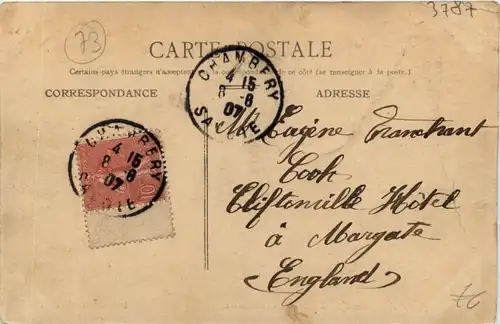 3787
73
CARTE POSTALE
Certains pays étrangers n'acceptent de ce côté (se renseigner à la poste.)
CORRESPONDANCE
ADRESSE
CHAMBERY
4 15
8 -8
07
SAVOIE
CHAMBERY
4 15
8 8
07
10
Mr Eugène Tranchant
Cook
Cliftonville Hôtel
à Margate
England